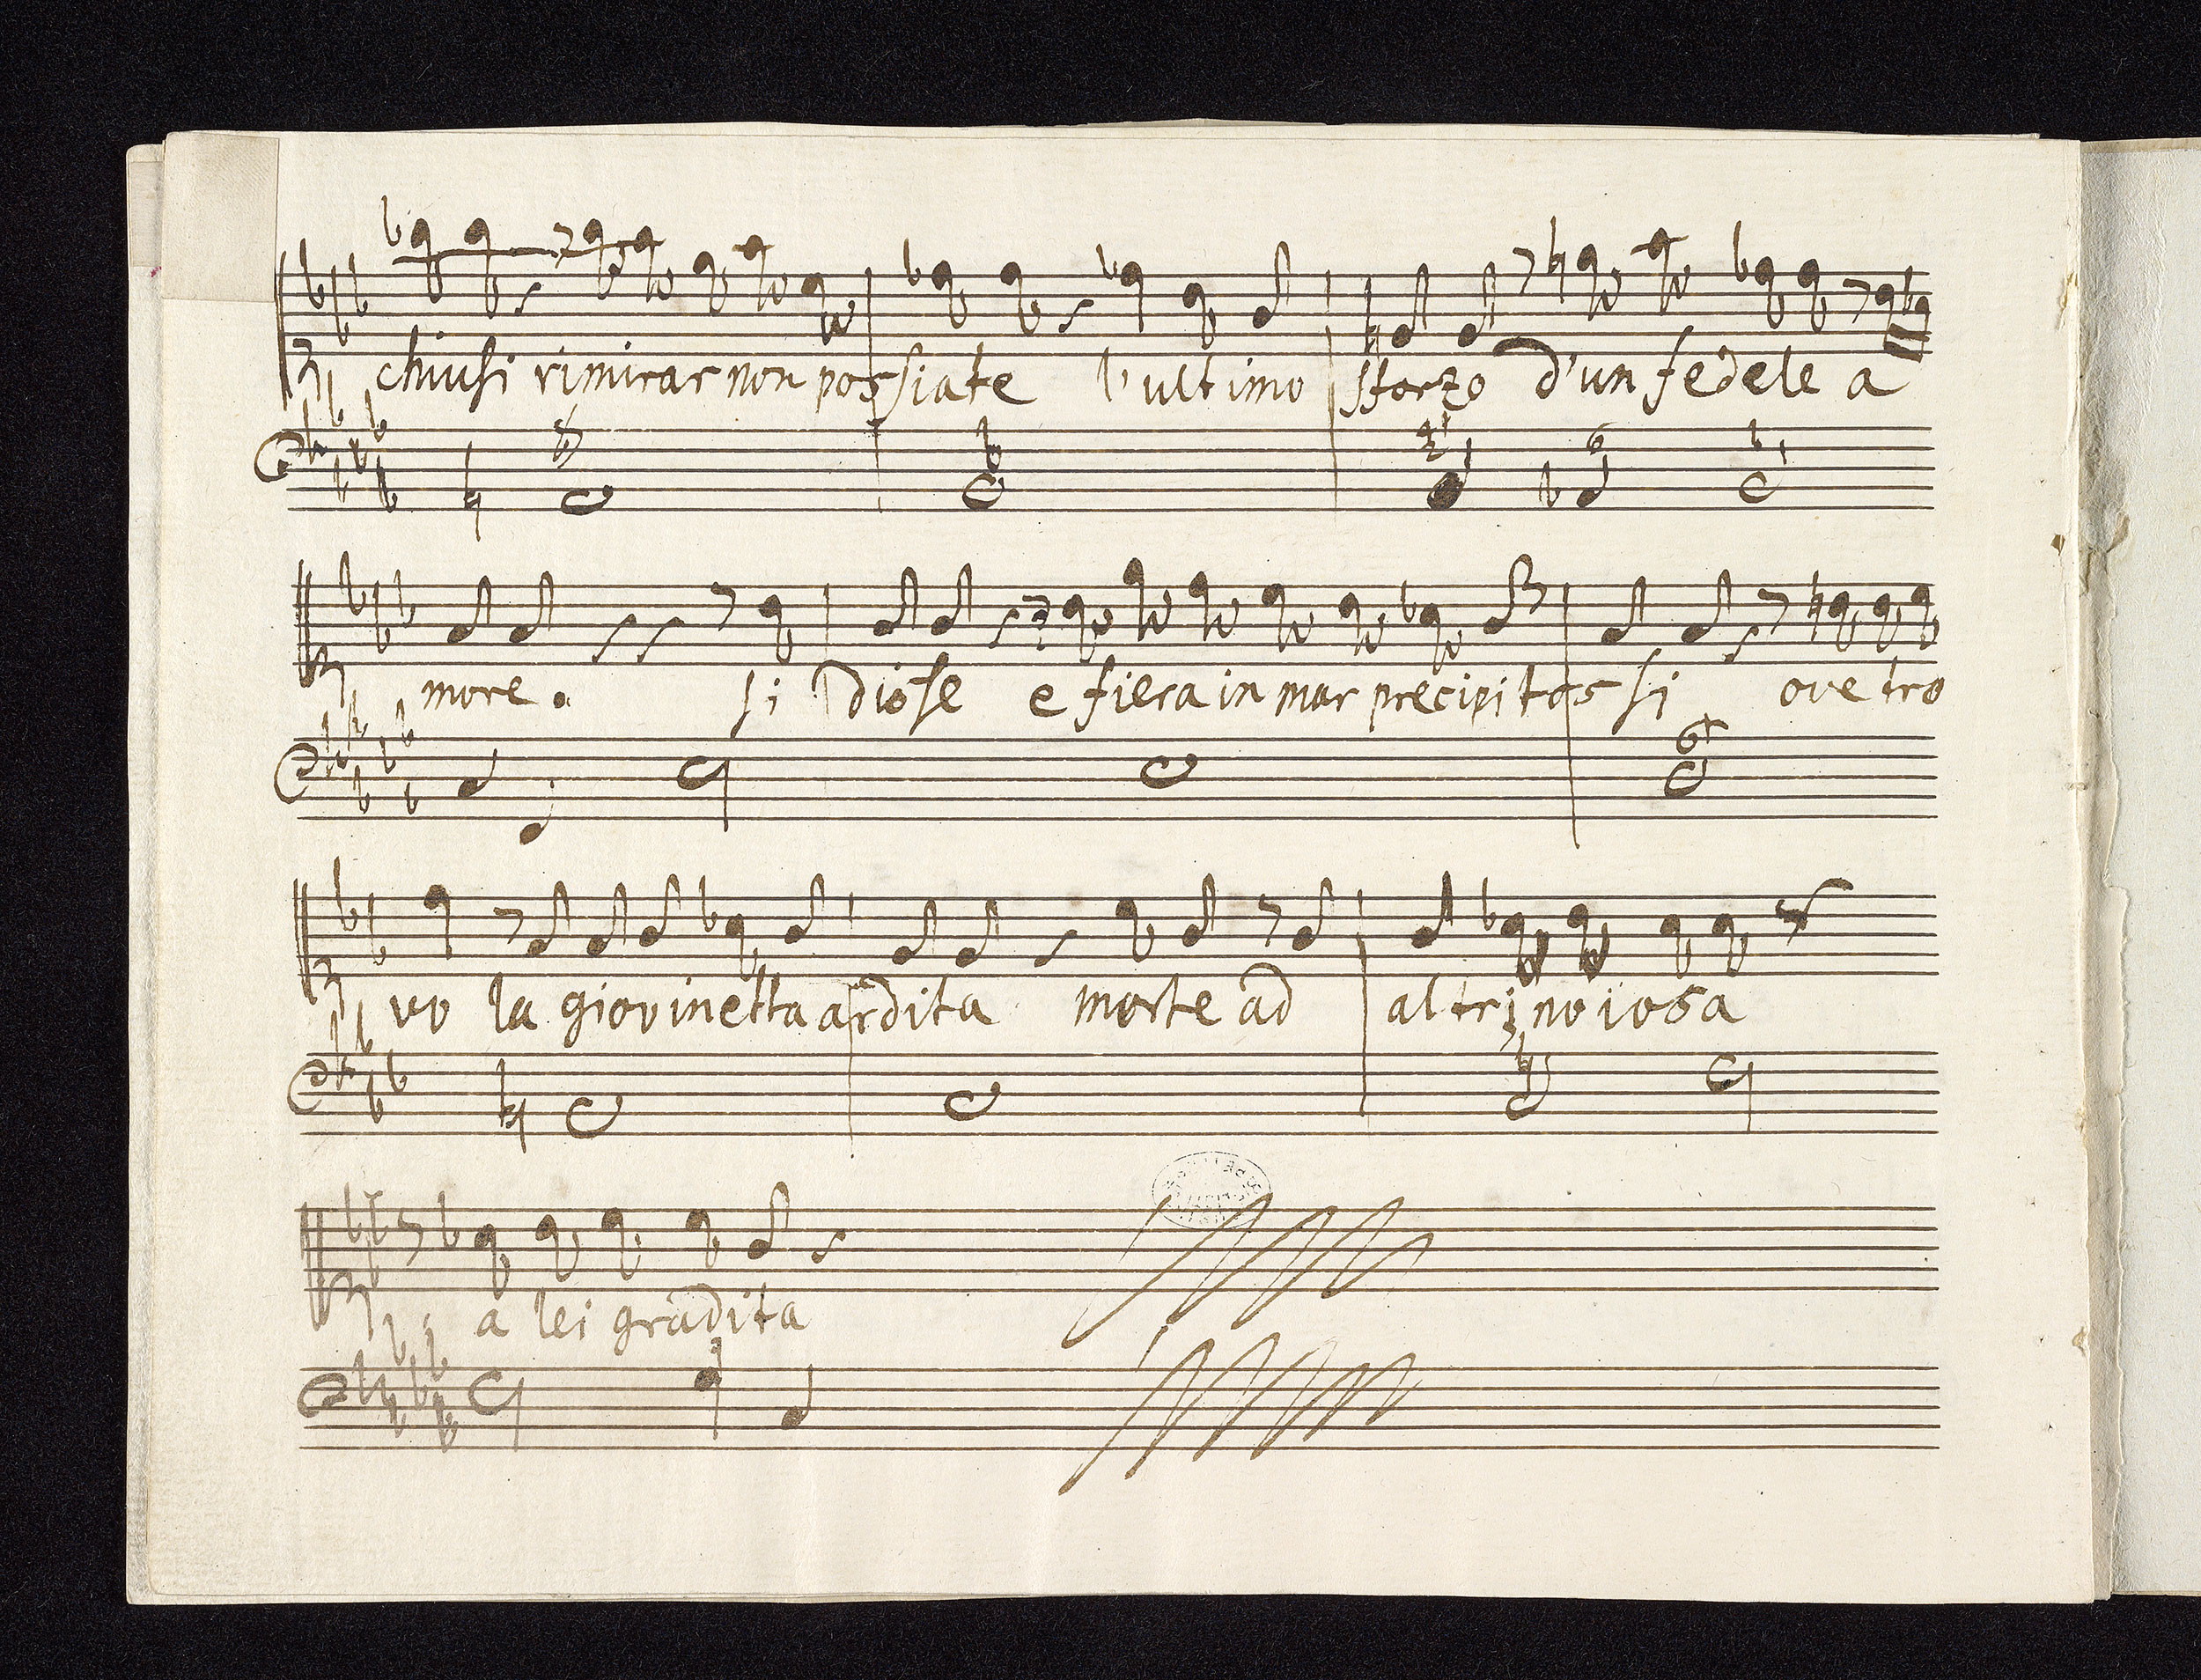 chiusi rimirar non possiate l'ultimo sforzo d'un fedele a
more. si diose e fiera in mar precipitossi ove tro
vo la giovinetta ardita morte ad altri noiosa
a lei gradita